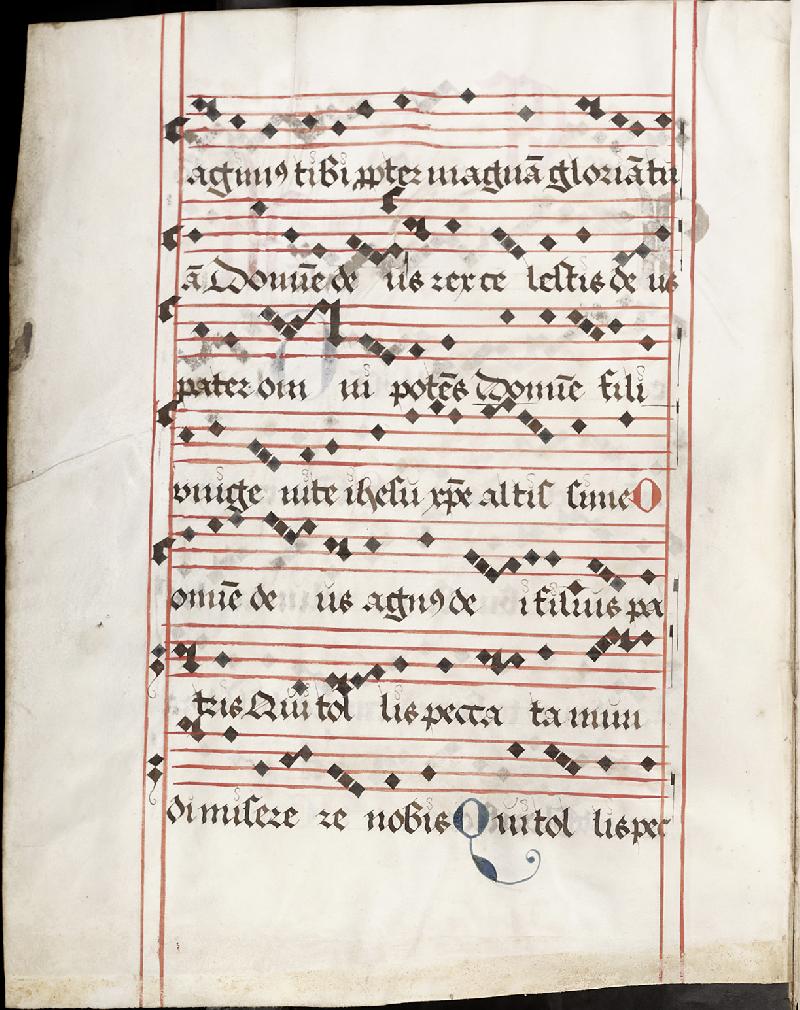 agimꝯ tibi ꝓpter magnā gloriā tu
ā Domīe de us rex ce lestis de us
pater om ni potēs Domīe fili
vnige nite ihesu xp̄e altis sime O
omīe de us agnꝯ de i filius pa
tris Qui tol lis pecca ta mun
di misere re nobis Qui tol lis pec